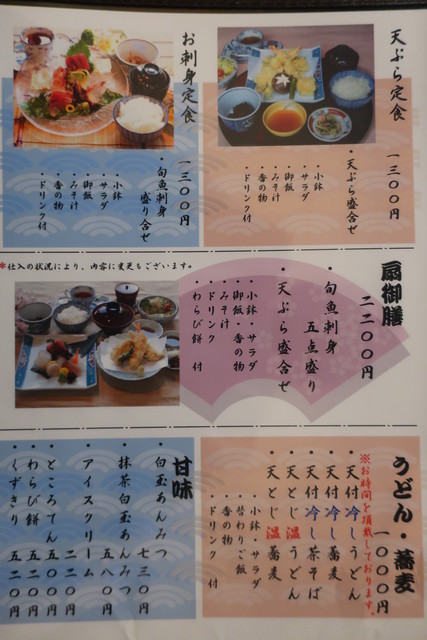 天ぷら定食
一三〇〇円
・天ぷら盛合せ
・小鉢
・サラダ
・御飯
・みそ汁
・香の物
・ドリンク付
お刺身定食
一三〇〇円
・旬魚刺身
盛り合せ
・小鉢
・サラダ
・御飯
・みそ汁
・香の物
・ドリンク付
*仕入の状況により、内容に変更もございます。
扇御膳
二二〇〇円
・旬魚刺身
五点盛り
・天ぷら盛合せ
・小鉢・サラダ
・御飯・香の物
・みそ汁
・ドリンク
・わらび餅 付
うどん・蕎麦
一〇〇〇円
※お時間を頂戴しております。
・天付冷しうどん
・天付冷し蕎麦
・天付冷し茶そば
・天とじ温うどん
・天とじ温蕎麦
・小鉢・サラダ
・替わりご飯
・香の物
・ドリンク 付
甘味
・白玉あんみつ
七三〇円
・抹茶白玉あんみつ
五八〇円
・アイスクリーム
二二〇円
・ところてん 五二〇円
・わらび餅 五二〇円
・くずきり 五二〇円